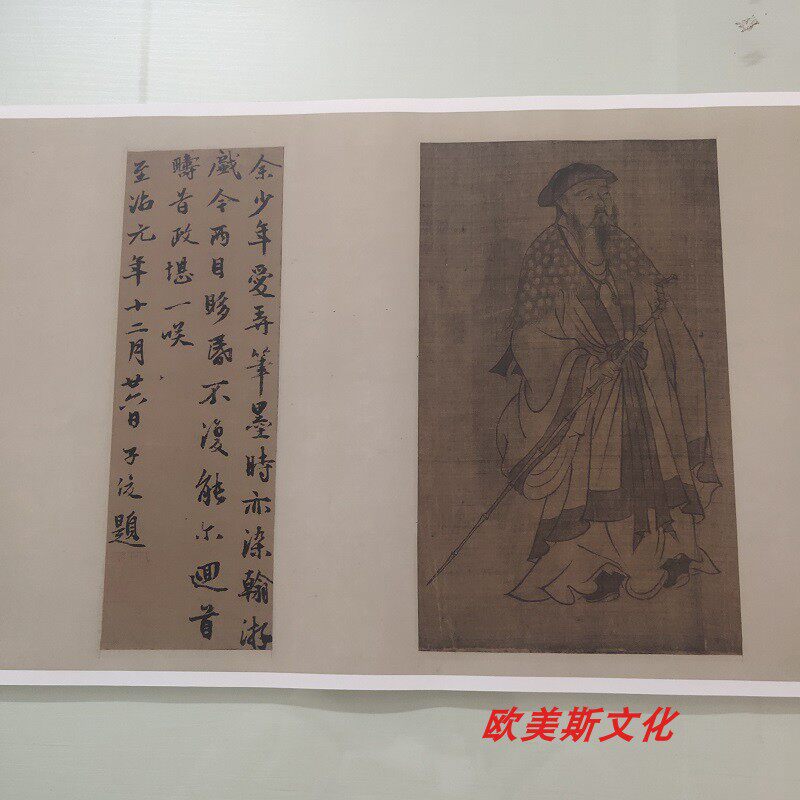 余少年愛弄筆墨時亦染翰游
戲今兩目眵昬不復能尓迴首
疇昔政堪一咲
至治元年十二月廿六日子俊題
欧美斯文化